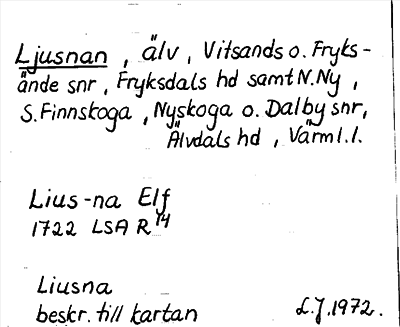 Ljusnan, älv, Vitsands o. Fryks-
ände snr, Fryksdals hd samt N.Ny,
S.Finnskoga, Nyskoga o. Dalby snr,
Älvdals hd, Värml.l.
Lius-na Elf
1722 LSA R 14
Liusna
beskr. till kartan
L.J.1972.